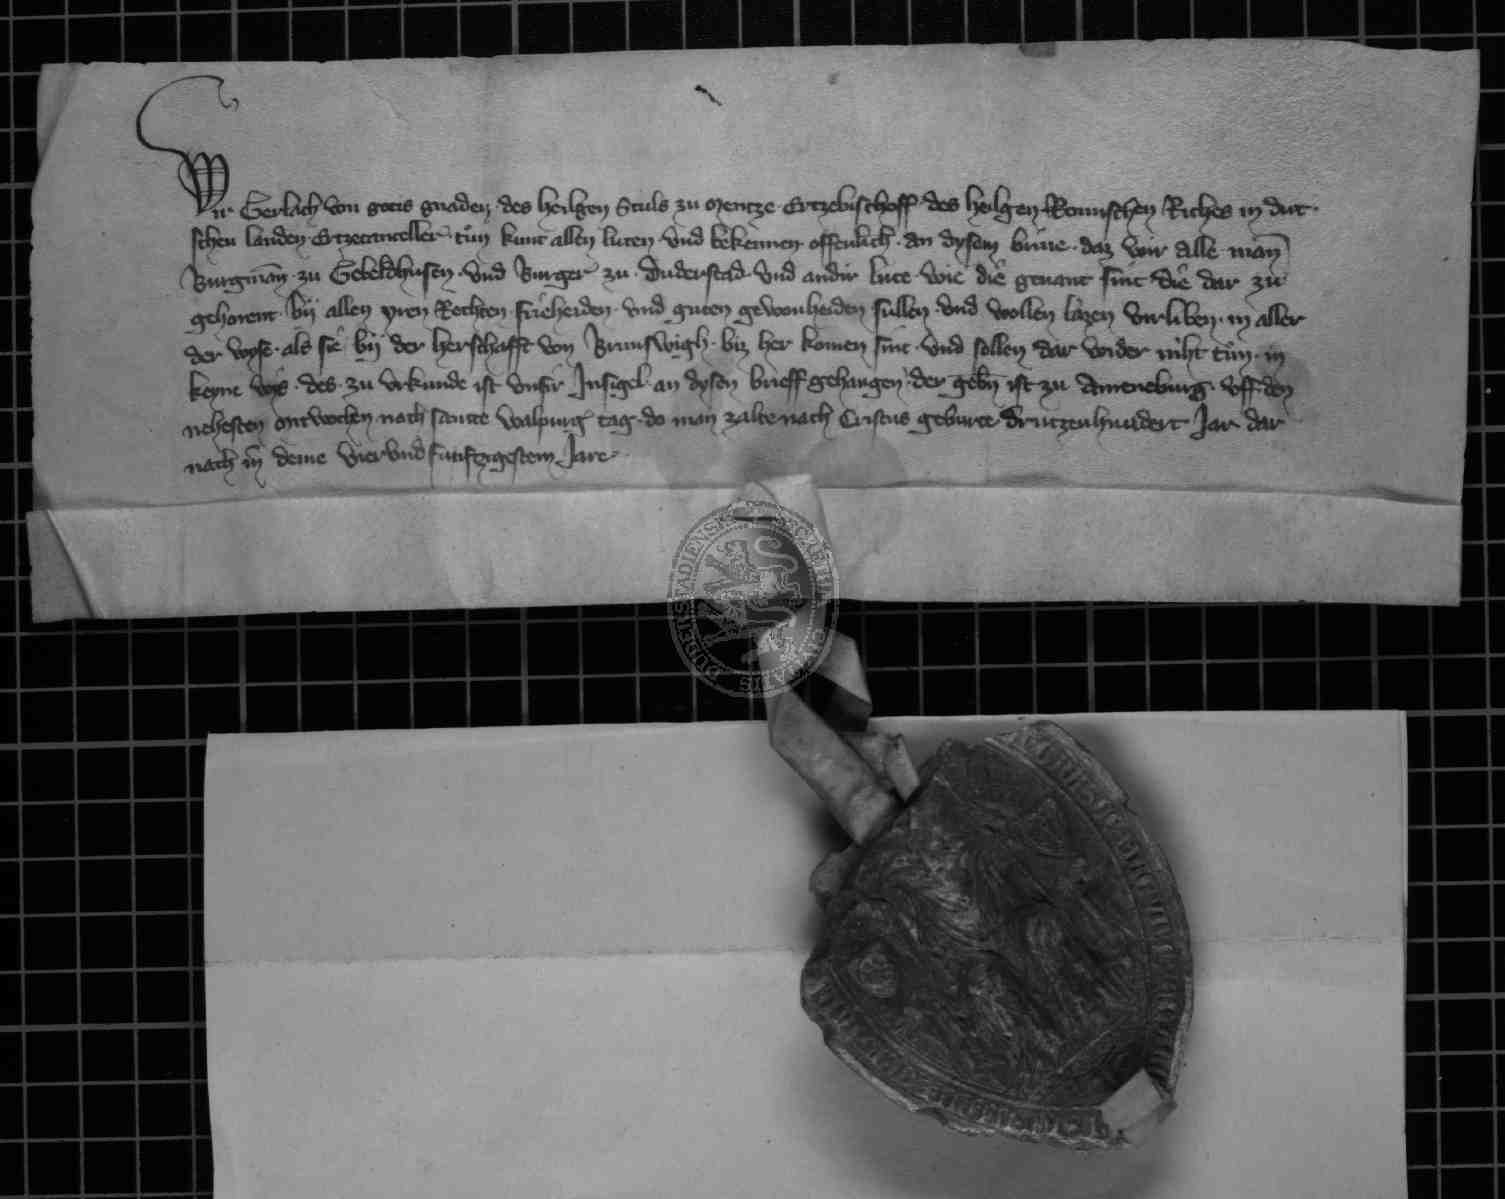 Wir Gerlach von gotis gnaden · des heilgen Stuls zu Mentze · Ertzebischoff · des heilgen Romischen Riches in dut-
schen landen Ertzecanceller · tun kunt allen luten · vnd bekennen offenlich · an dysem briue · daz wir alle man
Burgman zu Gebeldhusen · vnd Burger zu · Duderstad · vnd andir lute · wie die genant sint · die dar zu
gehorent · bij allen yren Rechten · frieheiden · vnd guten gewonheiden sullen · vnd wollen lazen virliben · in aller
der wyse · als sie bij der herschafft von Brunswigh · biz her komen sint · vnd sollen dar wider niht tun · in
keyne wys · des · zu vrkunde ist vnsir Jnsigel · an dysen brieff gehangen · der gebn ist zu Ameneburg · vff den
nehesten mitwochen · nach sante walpurg tag · do man zalte nach Cristus geburte drutzenhundert Jar dar
nach in deme vier vnd funftzigestem Jare ·
DUDERSTADIENSIS
CIVITATIS